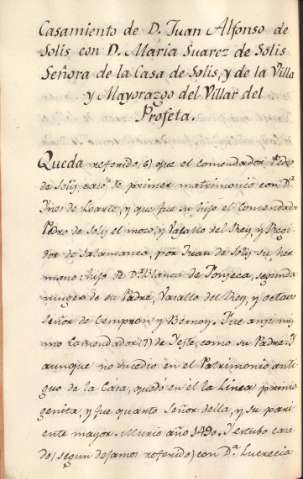 Casamiento de D. Juan Alfonso de
Solis con D. Maria Suarez de Solis
Señora de la Casa de Solis, y de la Villa
y Mayorazgo del Villar del
Profeta.
Queda referido, 6) que el comendador Pedro
de Solis, caso de primer matrimonio con Dª
Ynes de Loarte, y que fue su hijo el Comendador
Pedro de Solis el moço, y Vasallo del Rey, y Regi-
dor de Salamanca, por Juan de Solis su her-
mano: hijo de Dª Blanca de Fonseca, segunda
muger de su Padre, Vasallo del Rey, y octavo
Señor de Cempron, y Bernoy. Fue assimis-
mo Comendador (7) de Yeste, como su Padre. Y
aunque no sucedio en el Patrimonio anti-
guo de la Casa, quedó en el la Linea primo
genita, y fue quarto Señor della, y su pari-
ente mayor. Murio año 1490. Y estubo casa
do, (segun dejamos referido) con Dª Lucrecia